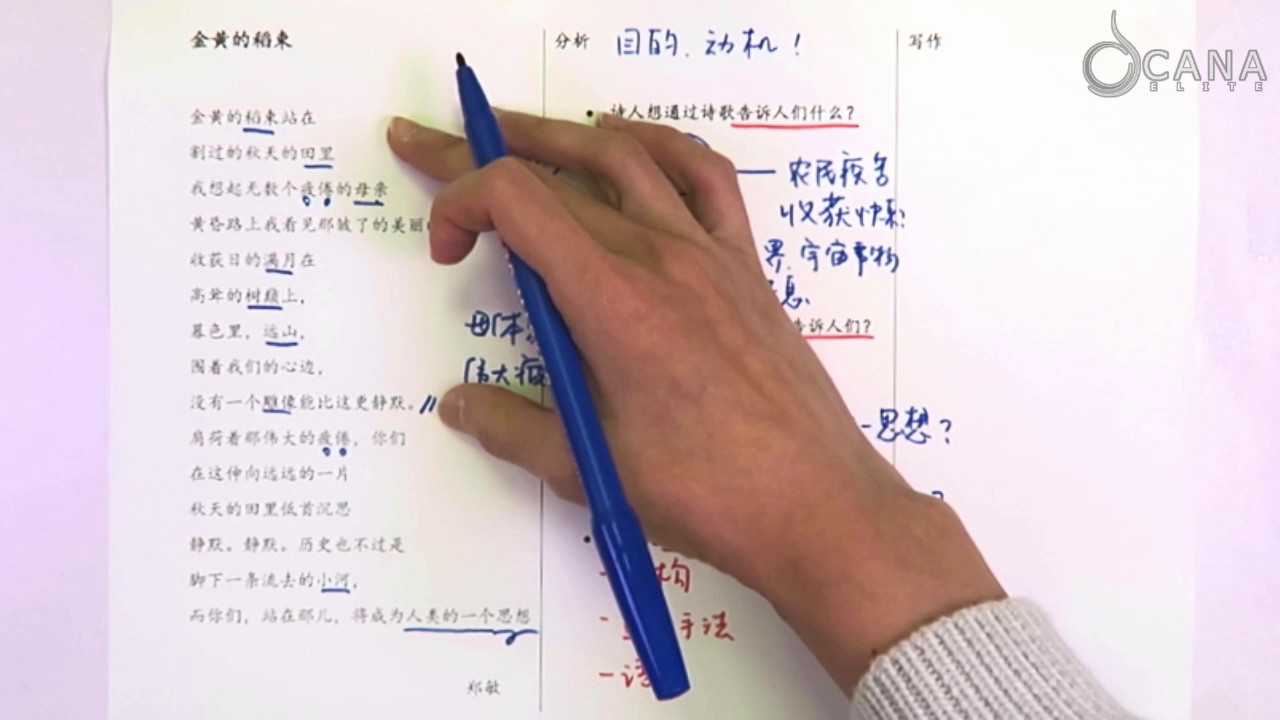 金黄的稻束
金黄的稻束站在
割过的秋天的田里
我想起无数个疲倦的母亲
黄昏路上我看见那皱了的美丽
收获日的满月在
高耸的树巅上，
暮色里，远山，
围着我们的心边，
没有一个雕像能比这更静默。
肩荷着那伟大的疲倦，你们
在这伸向远远的一片
秋天的田里低首沉思
静默。静默。历史也不过是
脚下一条流去的小河，
而你们，站在那儿，将成为人类的一个思想
郑敏
母体
伟大疲
分析
目的、动机！
诗人想通过诗歌告诉人们什么？
农民疾苦
收获
界、宇宙事物
息
告诉人们？
思想？
构
手法
写作
OCANA
ELITE